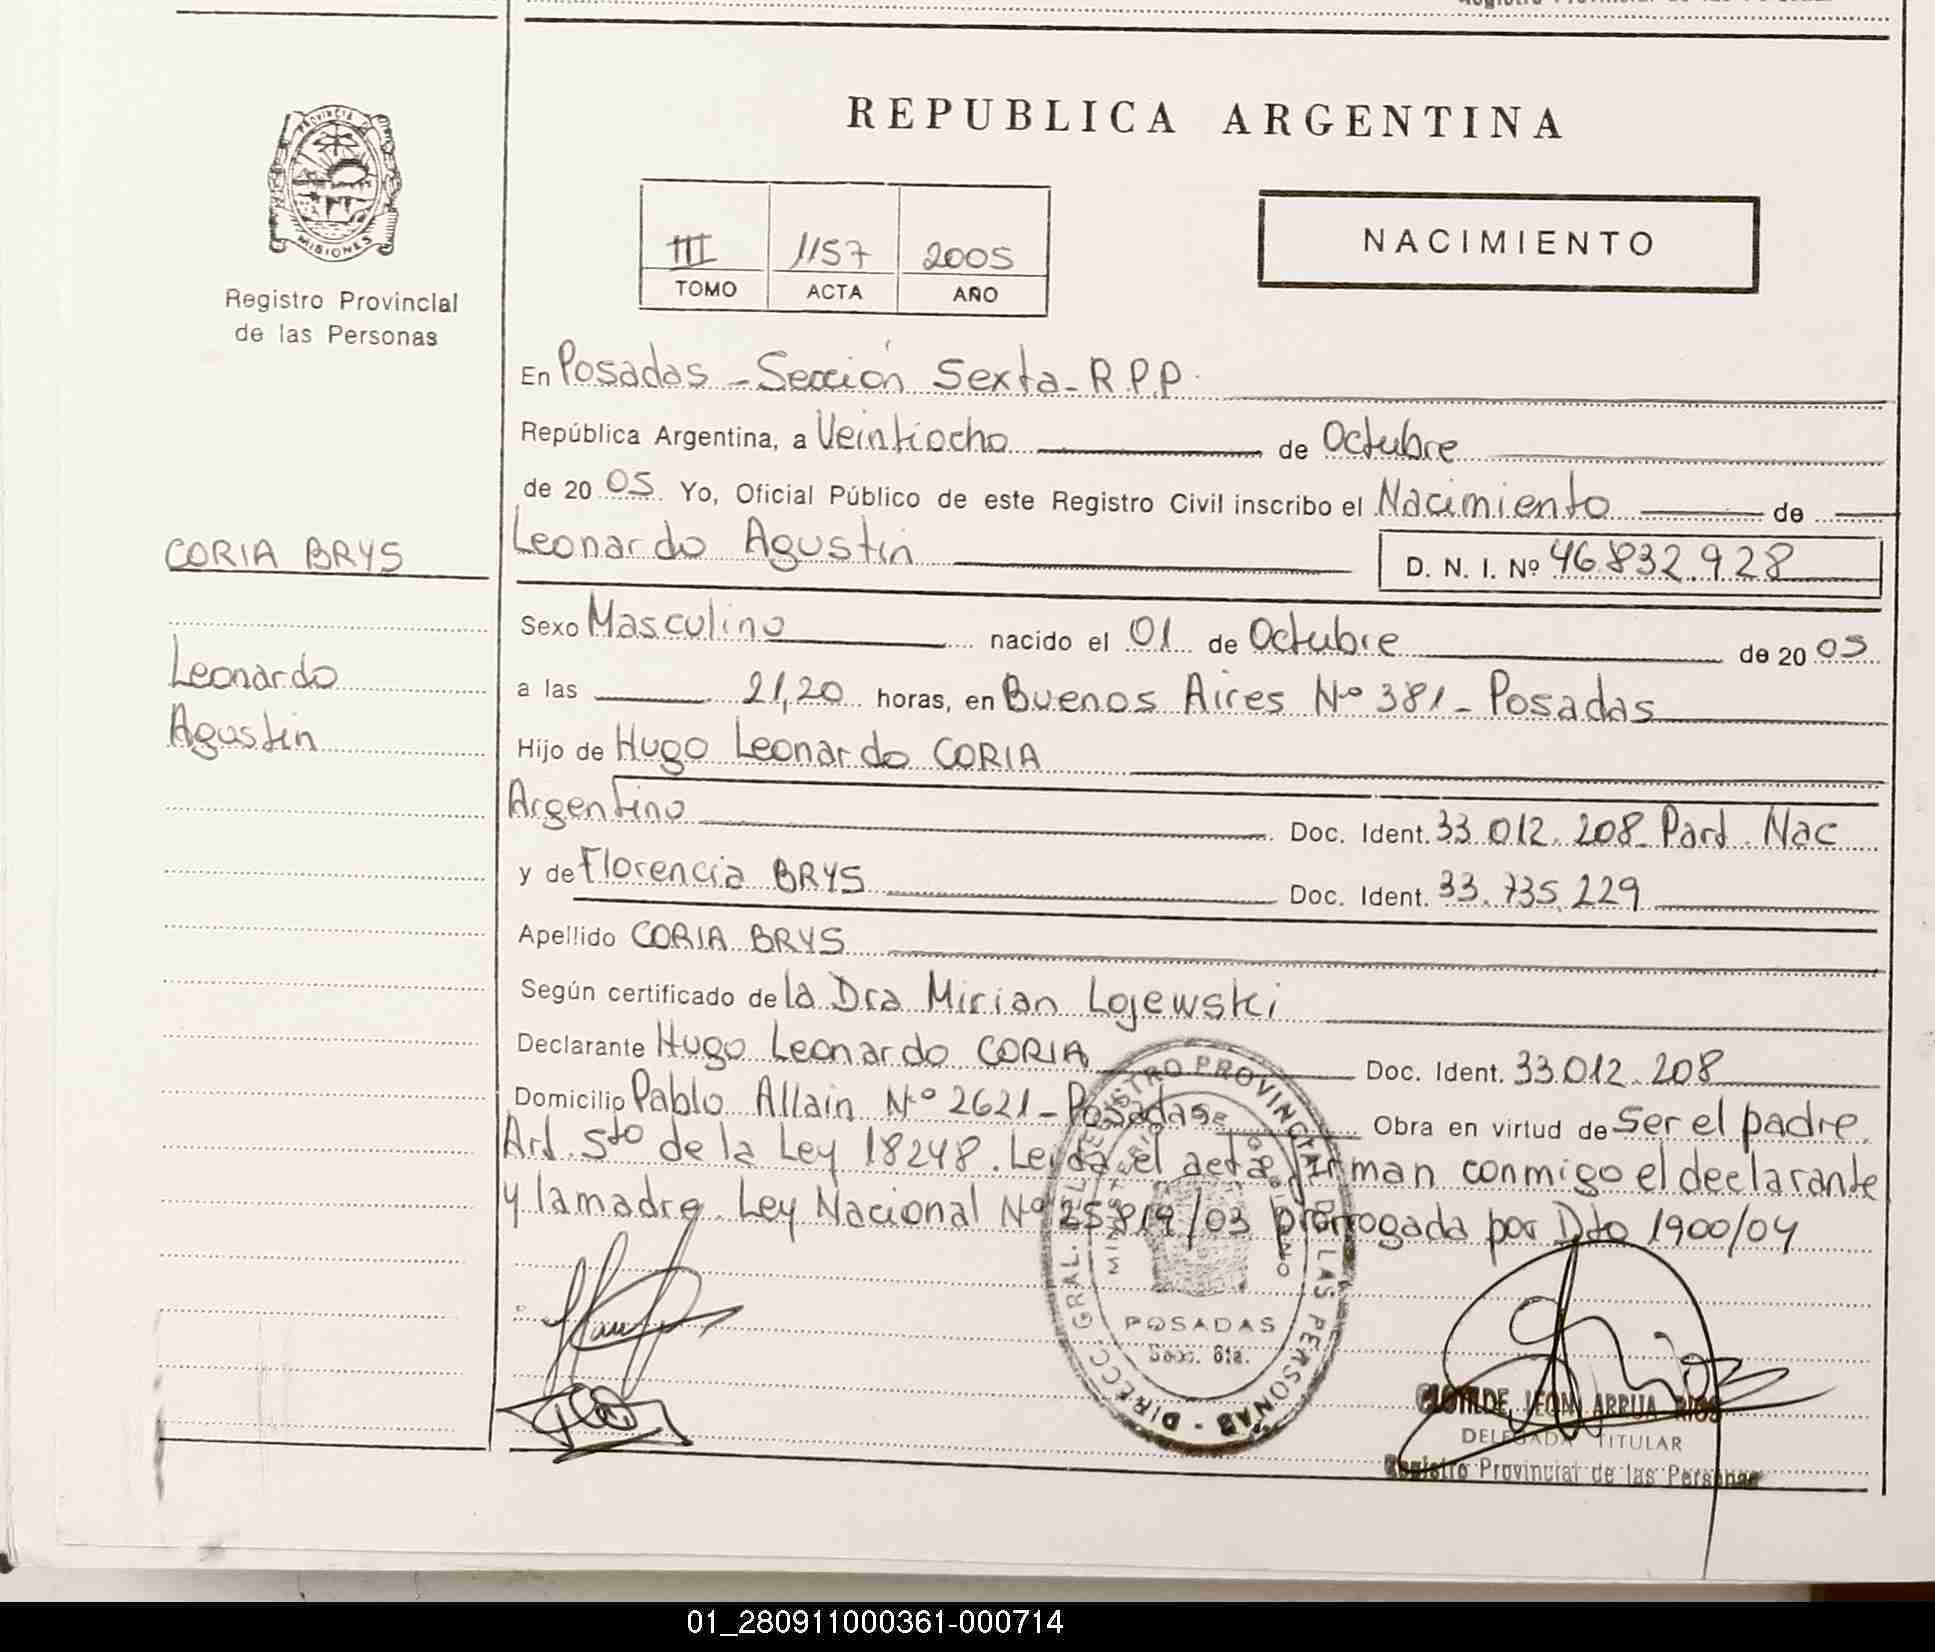 REPUBLICA ARGENTINA
PROVINCIA D
MISIONES
Registro Provincial
de las Personas
III 1157 2005
TOMO ACTA AÑO
NACIMIENTO
En Posadas - Sección Sexta - R.P.P.
República Argentina, a Veintiocho de Octubre
de 20 05 Yo, Oficial Público de este Registro Civil inscribo el Nacimiento de
CORIA BRYS
Leonardo Agustin D. N. I. Nº 46.832.928
Sexo Masculino nacido el 01 de Octubre de 20 05
Leonardo
a las 21,20 horas, en Buenos Aires Nº 381 - Posadas
Agustin
Hijo de Hugo Leonardo CORIA
Argentino Doc. Ident. 33.012.208 Part. Nac
y de Florencia BRYS Doc. Ident. 33.735.229
Apellido CORIA BRYS
Según certificado de la Dra Mirian Lojewski
Declarante Hugo Leonardo CORIA Doc. Ident. 33.012.208
Domicilio Pablo Allain Nº 2621 - Posadas Obra en virtud de Ser el padre.
Art. 5to de la Ley 18248. Leida el acta firman conmigo el declarante
y la madre. Ley Nacional Nº 25819/03 prorrogada por Dto 1900/04
DIRECC. GRAL. DEL REGISTRO PROVINCIAL DE LAS PERSONAS
MINISTERIO DE GOBIERNO
POSADAS
Secc. 6ta.
CLOTILDE LEON ARRUA RIOS
DELEGADA TITULAR
Registro Provincial de las Personas
01_280911000361-000714